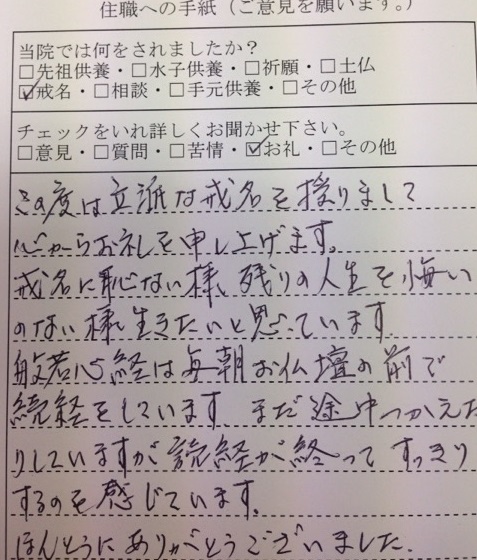 住職への手紙（ご意見を願います。）
当院では何をされましたか？
□先祖供養・□水子供養・□祈願・□土仏
☑戒名・□相談・□手元供養・□その他
チェックをいれ詳しくお聞かせ下さい。
□意見・□質問・□苦情・☑お礼・□その他
この度は立派な戒名を授りまして
心からお礼を申し上げます。
戒名に恥じない様、残りの人生を悔い
のない様生きたいと思っています。
般若心経は毎朝お仏壇の前で
続経をしています まだ途中つかえた
りしていますが読経が終ってすっきり
するのを感じています。
ほんとうにありがとうございました。